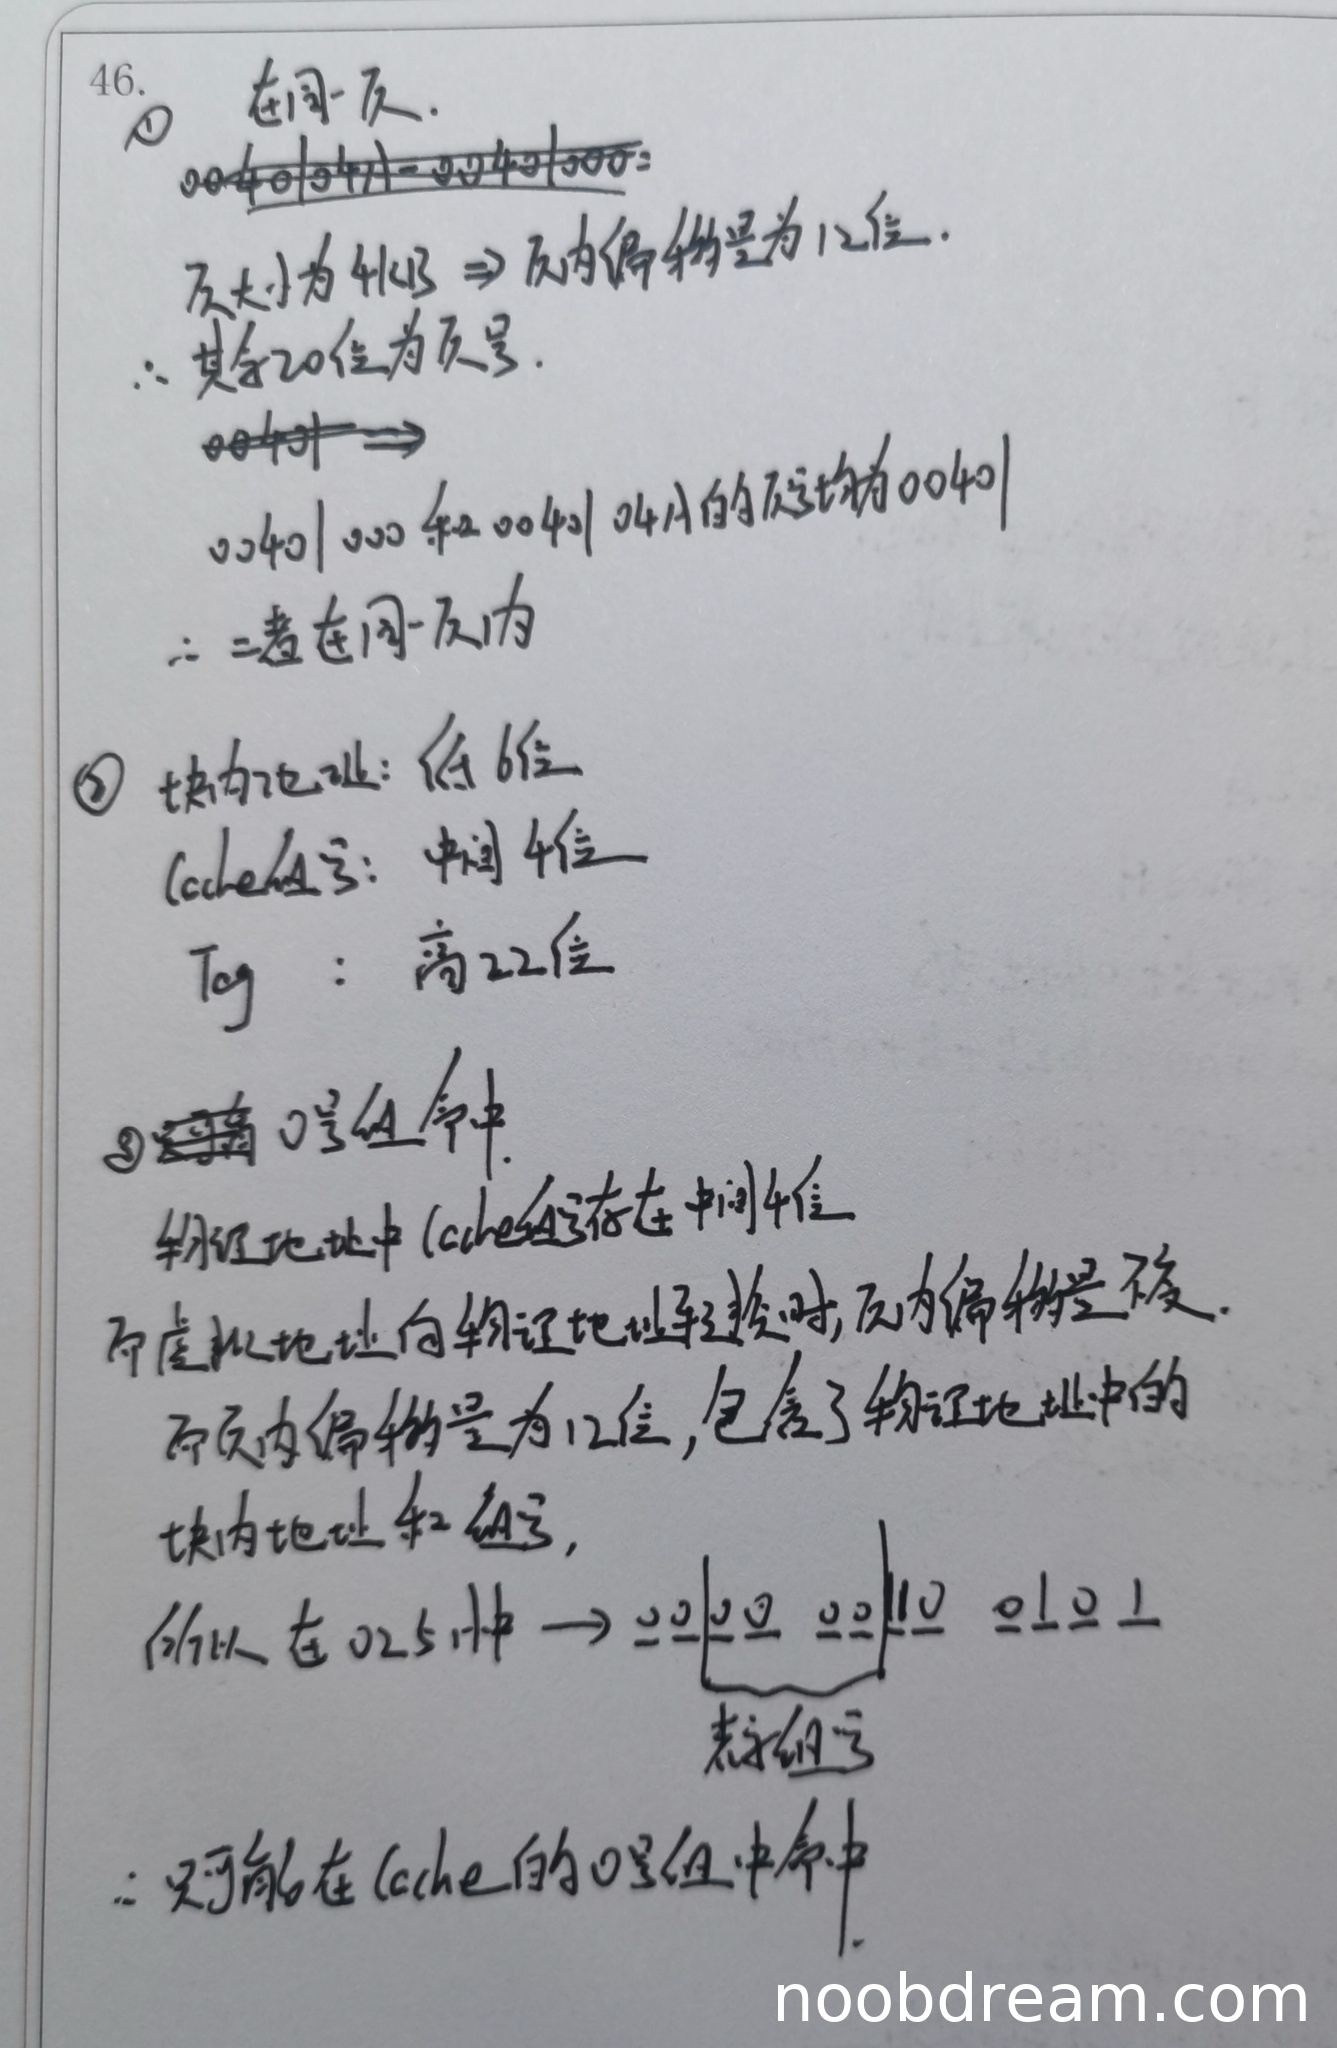 46.
① 在同一页.
0040104A - 00401000 =
页大小为4KB ⇒ 页内偏移量为12位.
∴ 其余20位为页号.
00401 ⇒
00401 000 和 00401 04A 的页号均为00401
∴ 二者在同一页内
② 块内地址: 低6位
Cache组号: 中间4位
Tag : 高22位
③ 0号组命中.
物理地址中Cache组号存在中间4位
而虚拟地址向物理地址转换时,页内偏移量不变.
而页内偏移量为12位,包含了物理地址中的
块内地址和组号,
所以在025H中 → 00|00 00|10 0101
表示组号
∴ 只可能在Cache的0号组中命中.
noobdream.com